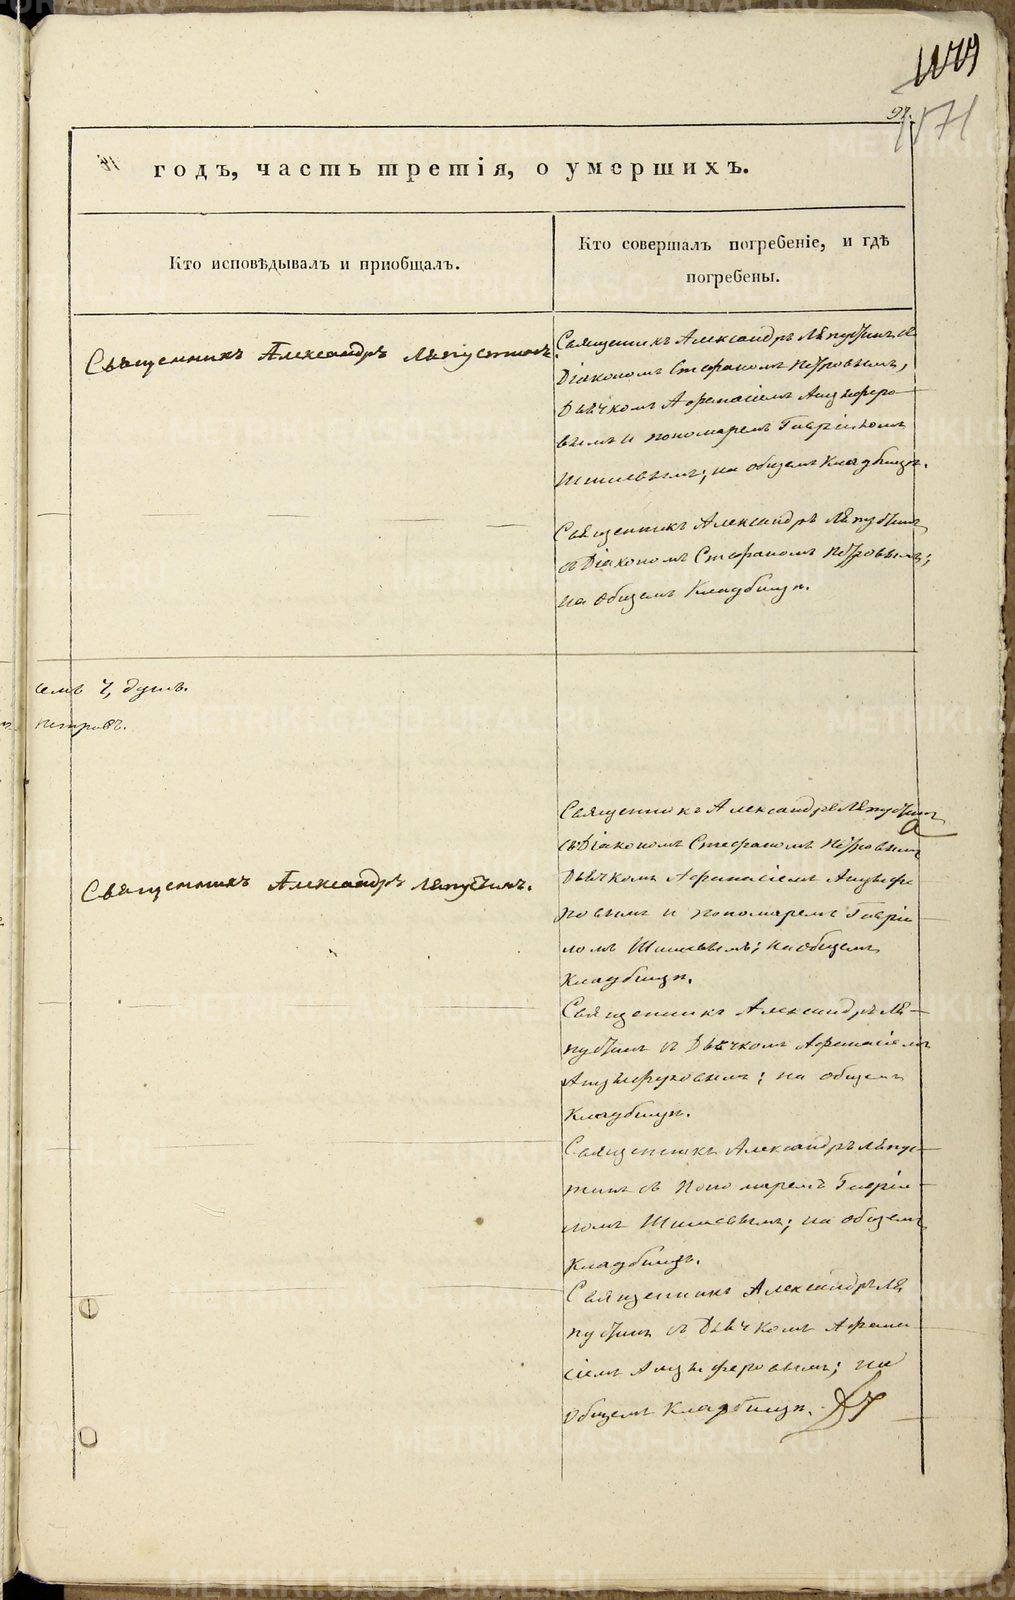 1171
годъ, часть третія, о умершихъ.
Кто исповѣдывалъ и пріобщалъ.
Кто совершалъ погребеніе, и гдѣ
погребены.
Священникъ Александръ Ляпустинъ
Священникъ Александръ Ляпустинъ съ
Діакономъ Стефаномъ Петровымъ,
Дьячкомъ Афанасіемъ Анцыферо-
вымъ и пономаремъ Гавріиломъ
Шишевымъ; на общемъ кладбищѣ.
Священникъ Александръ Ляпустинъ
съ Діакономъ Стефаномъ Петровымъ;
на общемъ кладбищѣ.
семъ 4, душъ.
Петровъ.
Священникъ Александръ Ляпустинъ
съ Діакономъ Стефаномъ Петровымъ
Дьячкомъ Афанасіемъ Анцыфе
ровымъ и пономаремъ Гавріи
ломъ Шишевымъ; на общемъ
кладбищѣ.
Священникъ Александръ Ляпустинъ.
Священникъ Александръ Ля-
пустинъ съ Дьячкомъ Афанасіемъ
Анцыферовымъ; на общемъ
кладбищѣ.
Священникъ Александръ Ляпус-
тинъ съ Пономаремъ Гавріи-
ломъ Шишевымъ; на общемъ
кладбищѣ.
Священникъ Александръ Ля
пустинъ съ Дьячкомъ Афана
сіемъ Анцыферовымъ; на
общемъ кладбищѣ.
METRIKI.GASO-URAL.RU